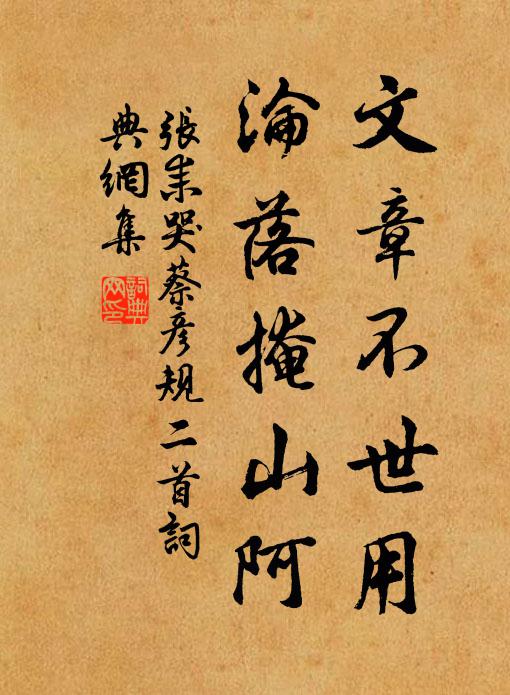 文章不世用
淪落掩山阿
張耒哭蔡彥規二首詞
典網集
詞典網印